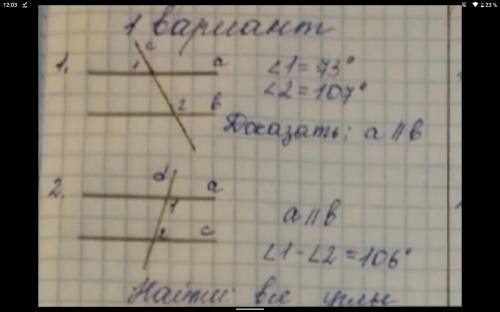 12:03
23 %
1 вариант
1.
c
1
a
2
b
∠1 = 73°
∠2 = 107°
Доказать: a || b
2.
d
a
1
2
c
a || b
∠1 - ∠2 = 106°
Найти: все углы